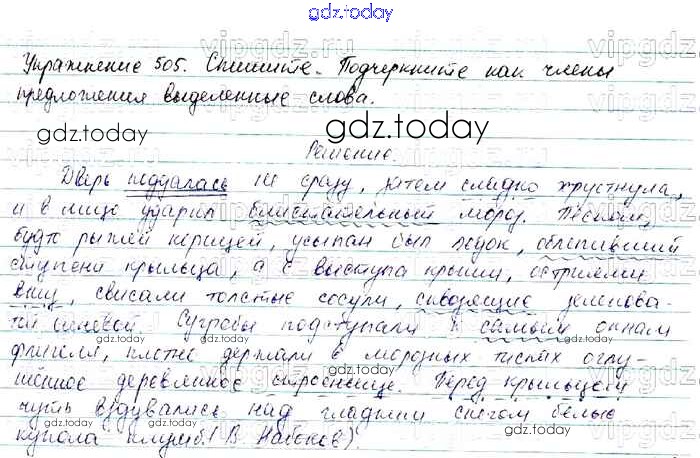 gdz.today
Упражнение 505. Спишите. Подчеркните как члены
предложения выделенные слова.
gdz.today
gdz.today
Решение.
Дверь поддалась не сразу, затем сладко хрустнула,
и в лицо ударил блистательный мороз. Песком,
будто рыжей корицей, усыпан был ледок, облепивший
ступени крыльца, а с выступа крыши, остриями
вниз, свисали толстые сосули, сквозящие зеленова-
той синевой. Сугробы подступали к самым окнам
флигеля, плотно держали в морозных тисках оглу-
шённое деревянное строеньице. Перед крыльцом
чуть вздувались над гладким снегом белые
купола клумб. (В. Набоков).
gdz.today
gdz.today
gdz.today
gdz.today
gdz.today
vipgdz.ru